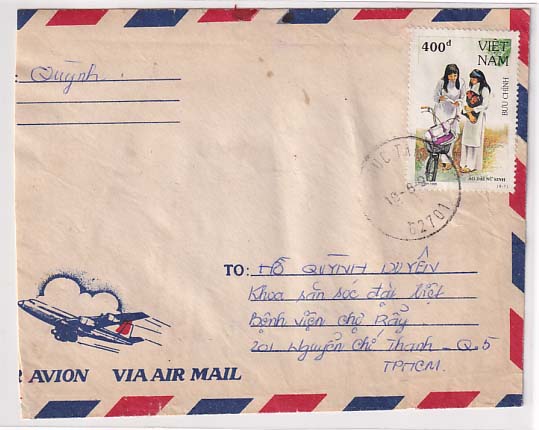 : Quỳnh
400đ
VIỆT
NAM
BƯU CHÍNH
ÁO DÀI NỮ SINH
62701
TO: HỒ QUỲNH DUYÊN
Khoa săn sóc đặt biệt
Bệnh viện chợ Rẫy
201 Nguyễn Chí Thanh - Q.5
TPHCM.
R AVION VIA AIR MAIL